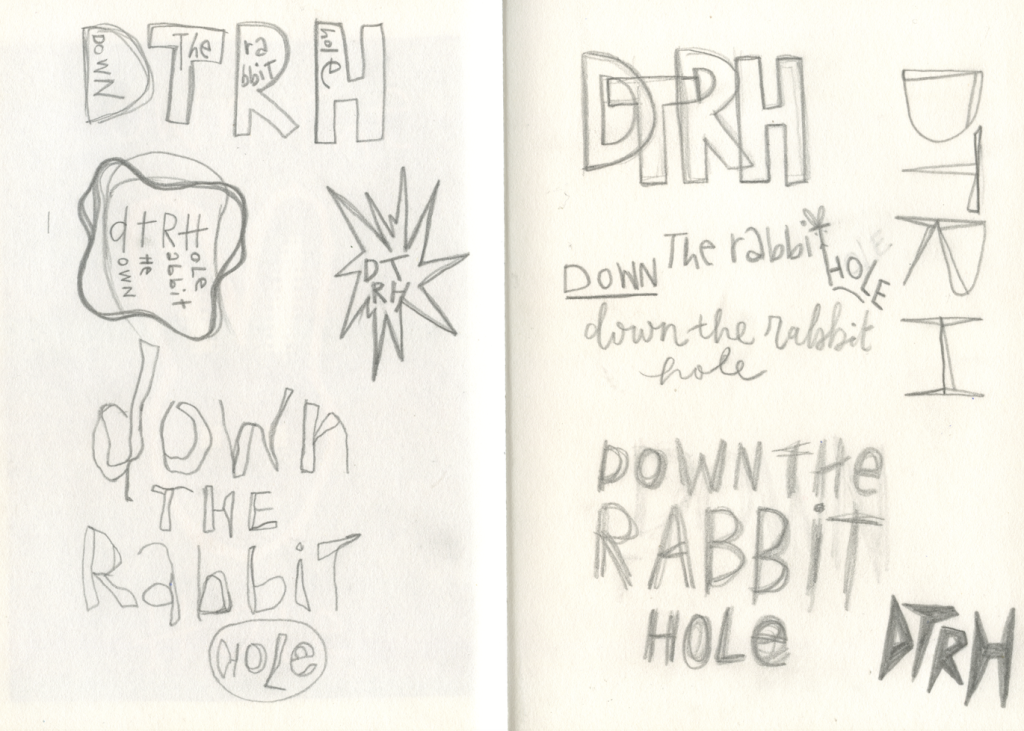 DTRH
DOWN The rabbiT hole
dtRH
DOWN the Rabbit HOLe
DT
RH
down
THE
RabbiT
HOLe
DTRH
DOWN The rabbit HOLE
down the rabbit
hole
DOWN THe
RABBiT
HOLe
DTRH
DTRH